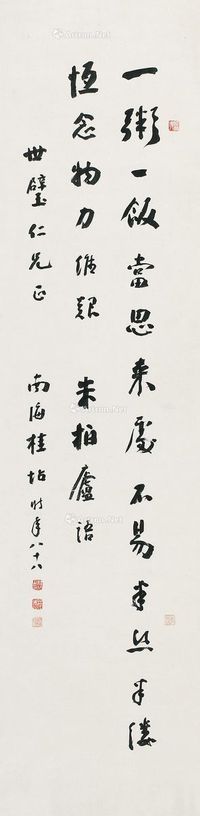 一粥一飯當思來處不易半絲半縷
恆念物力維艱 朱柏廬語
世璧仁兄正 南海桂坫時年八十八